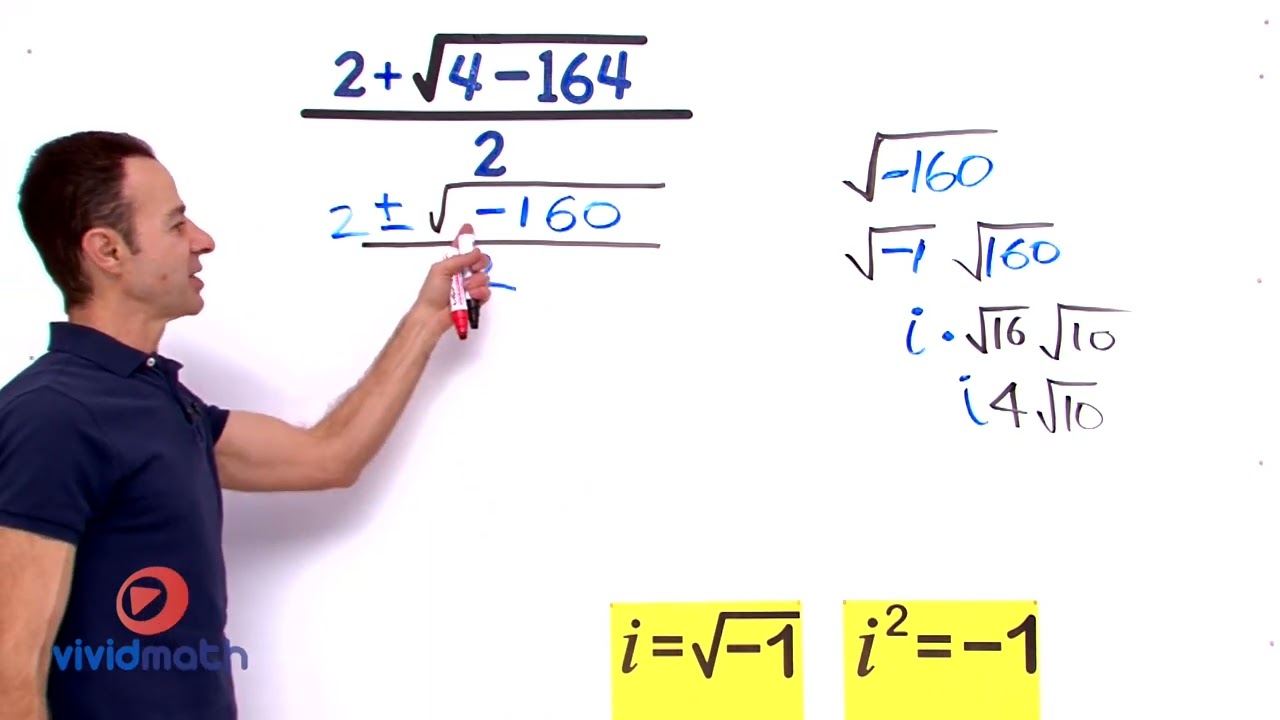 2+√4−164
2
2 ± √−160
2
√−160
√−1 √160
i · √16 √10
i 4 √10
i=√−1
i²=−1
vividmath